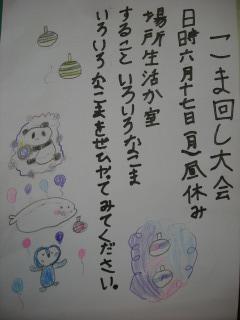 こま回し大会
日時六月十七日(月)昼休み
場所生活か室
すること いろいろなこま
いろいろなこまをぜひやてみてください。